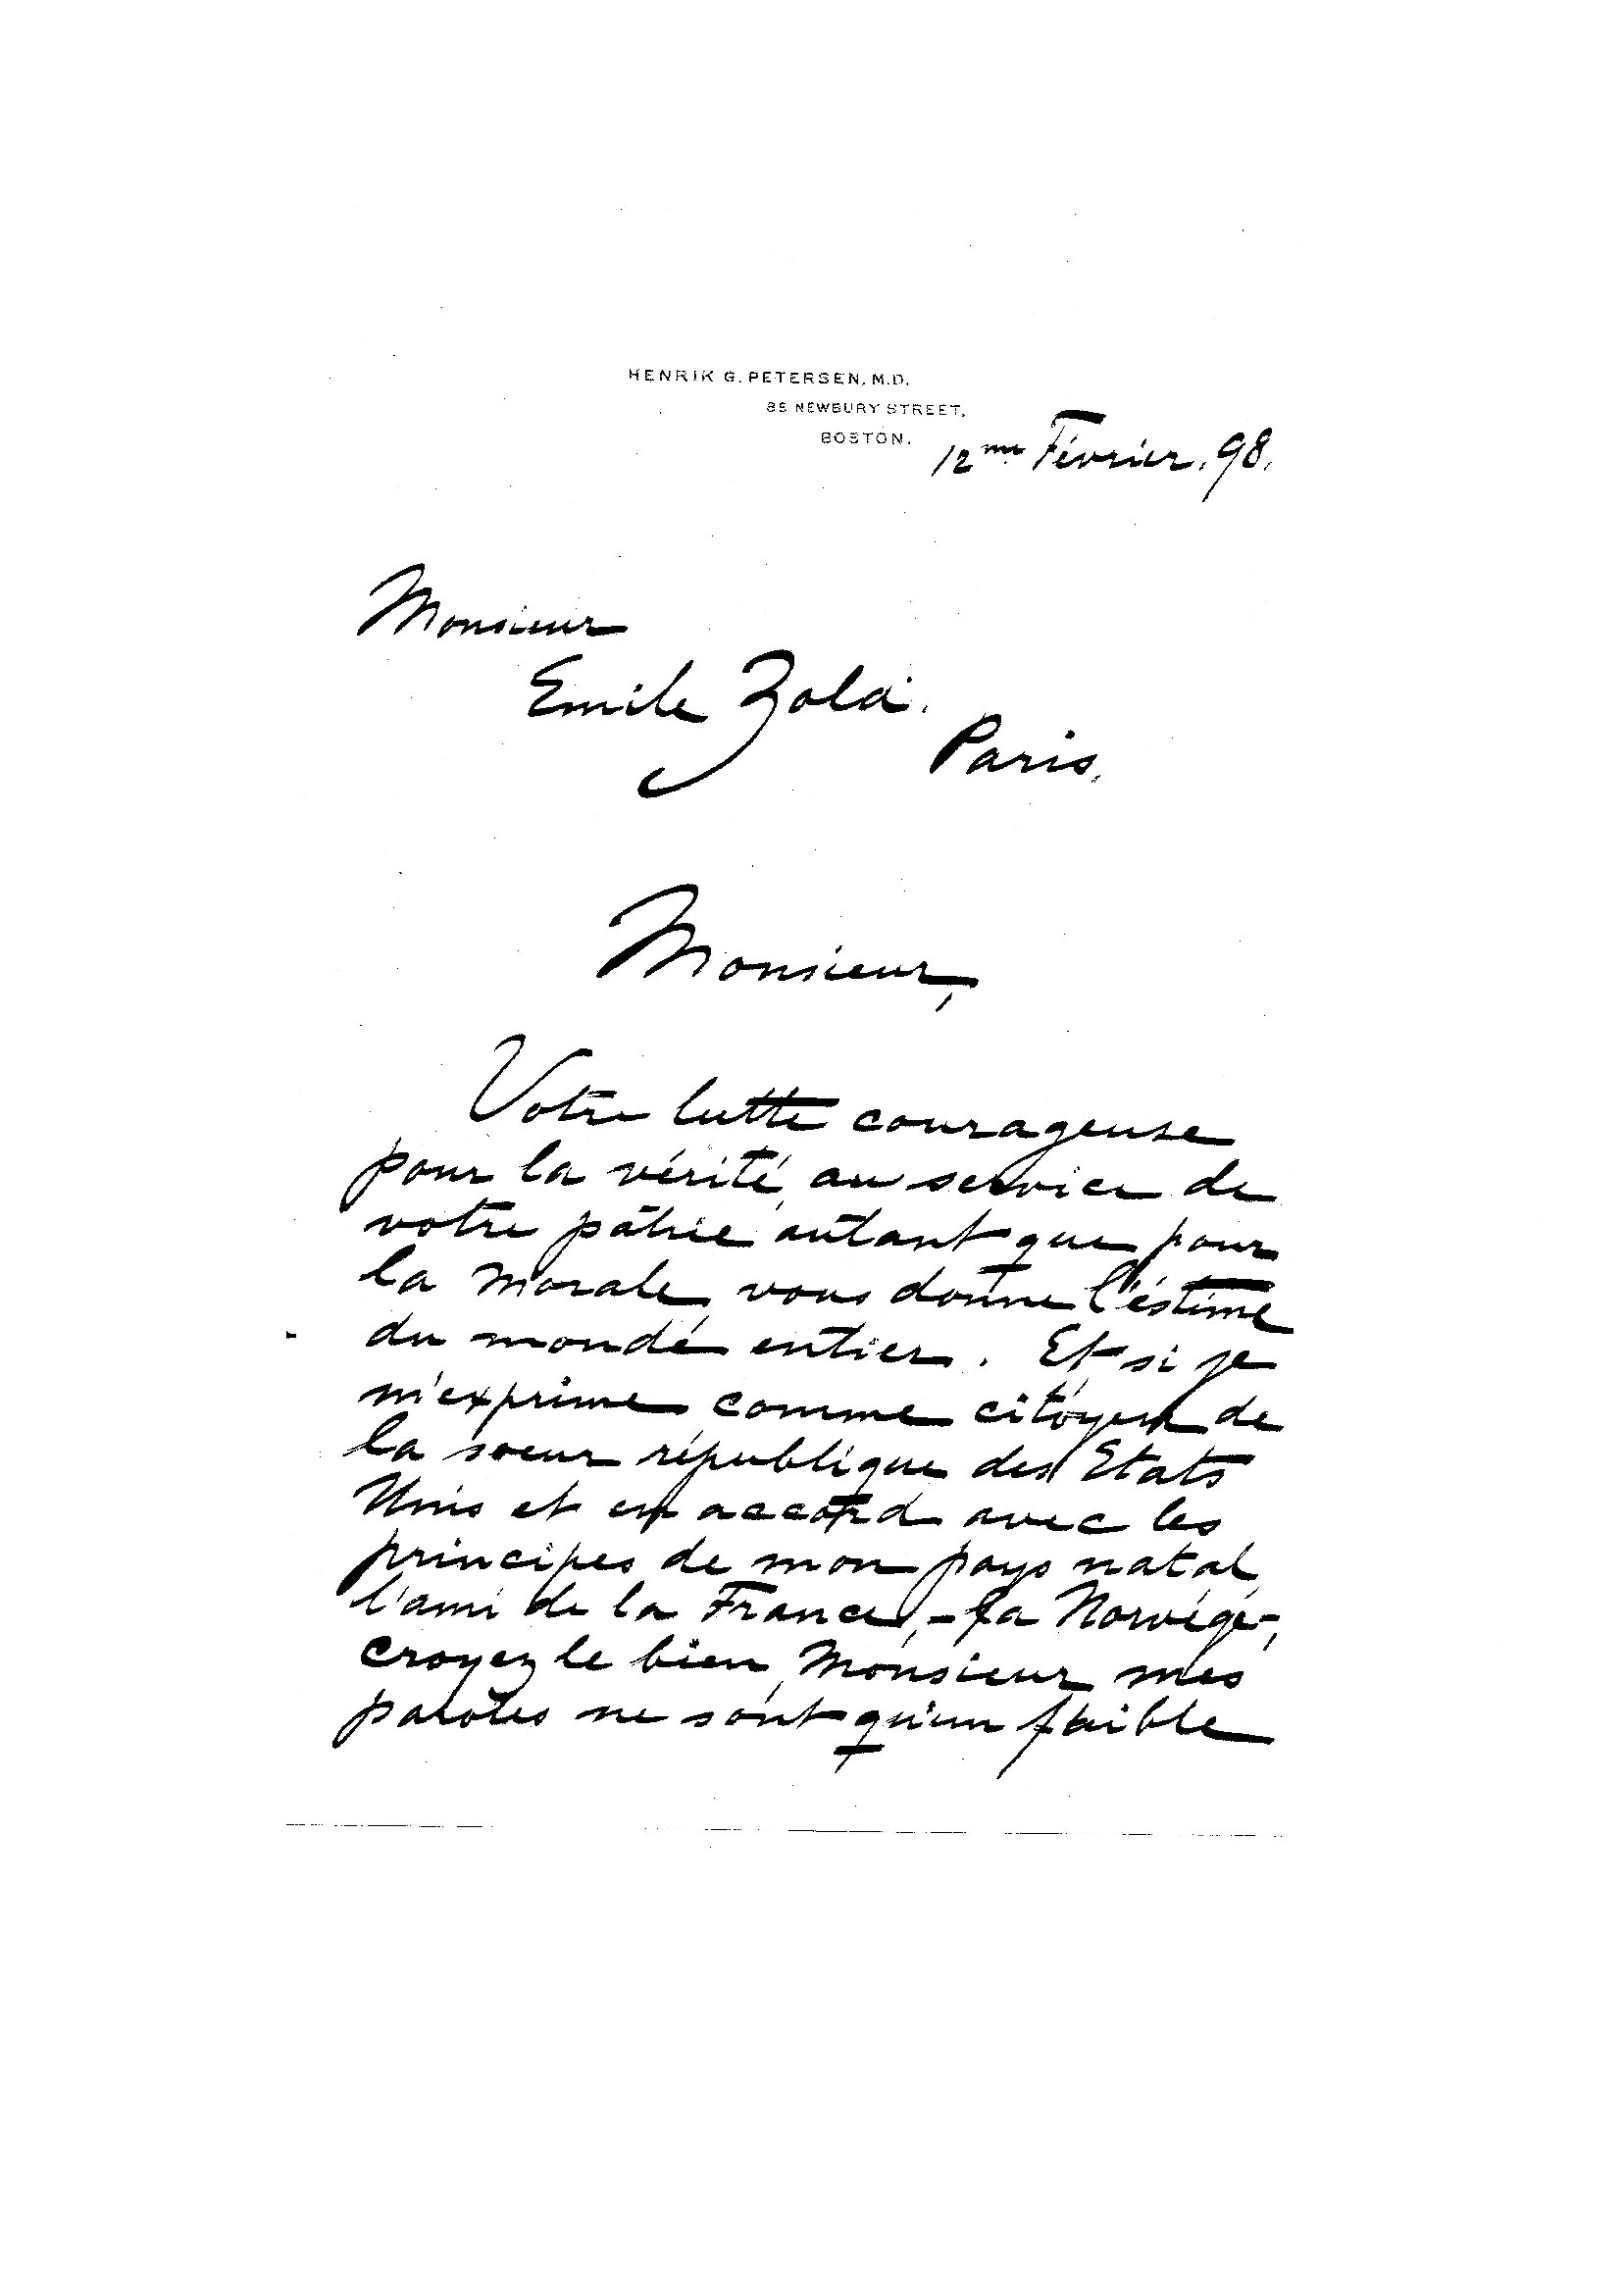 HENRIK G. PETERSEN, M.D.
85 NEWBURY STREET,
BOSTON.
12me Février. 98.
Monsieur
Emile Zola.
Paris.
Monsieur,
Votre lutte courageuse
pour la vérité, au service de
votre pâtrie autant que pour
la morale, vous donne l'éstime
du monde entier. Et si je
m'exprime comme citoyen de
la soeur république des Etats
Unis et en accord avec les
principes de mon pays natal,
l'ami de la France, - la Norvége -,
croyez le bien, Monsieur mes
paroles ne sont qu'un faible